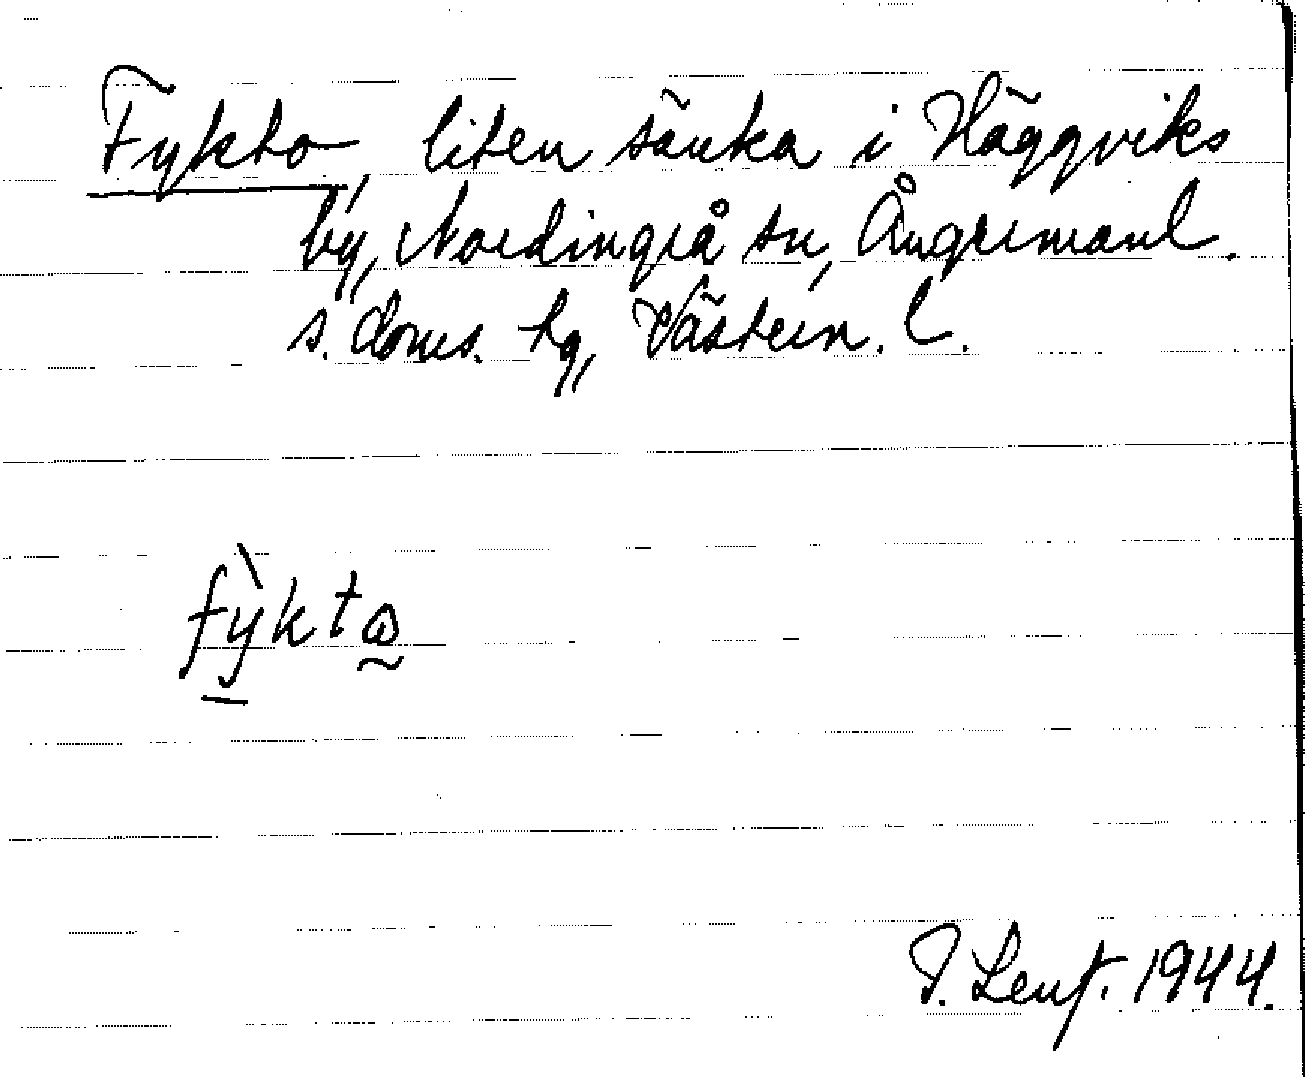 Fykto, liten sänka i Häggviks
by, Nordingrå sn, Ångermanl.
s. doms. hg, Västern. l.
fỳktɷ
1944.